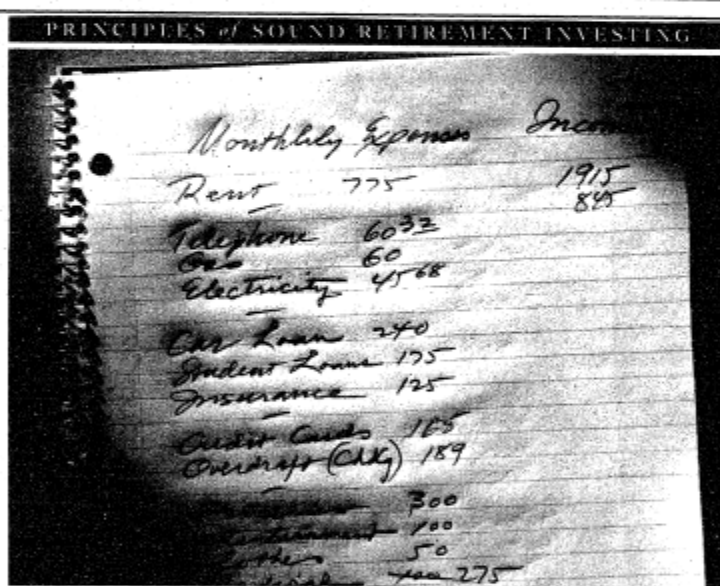 PRINCIPLES of SOUND RETIREMENT INVESTING
Monthlily Expenses Incom
Rent 775 1915
845
Telephone 60 32
Gas 60
Electricity 45 68
Car Loan 240
Student Loans 175
Insurance 125
Credit Cards 165
Overdraft (Chkg) 189
300
Entertainment 100
Clothes 50
275